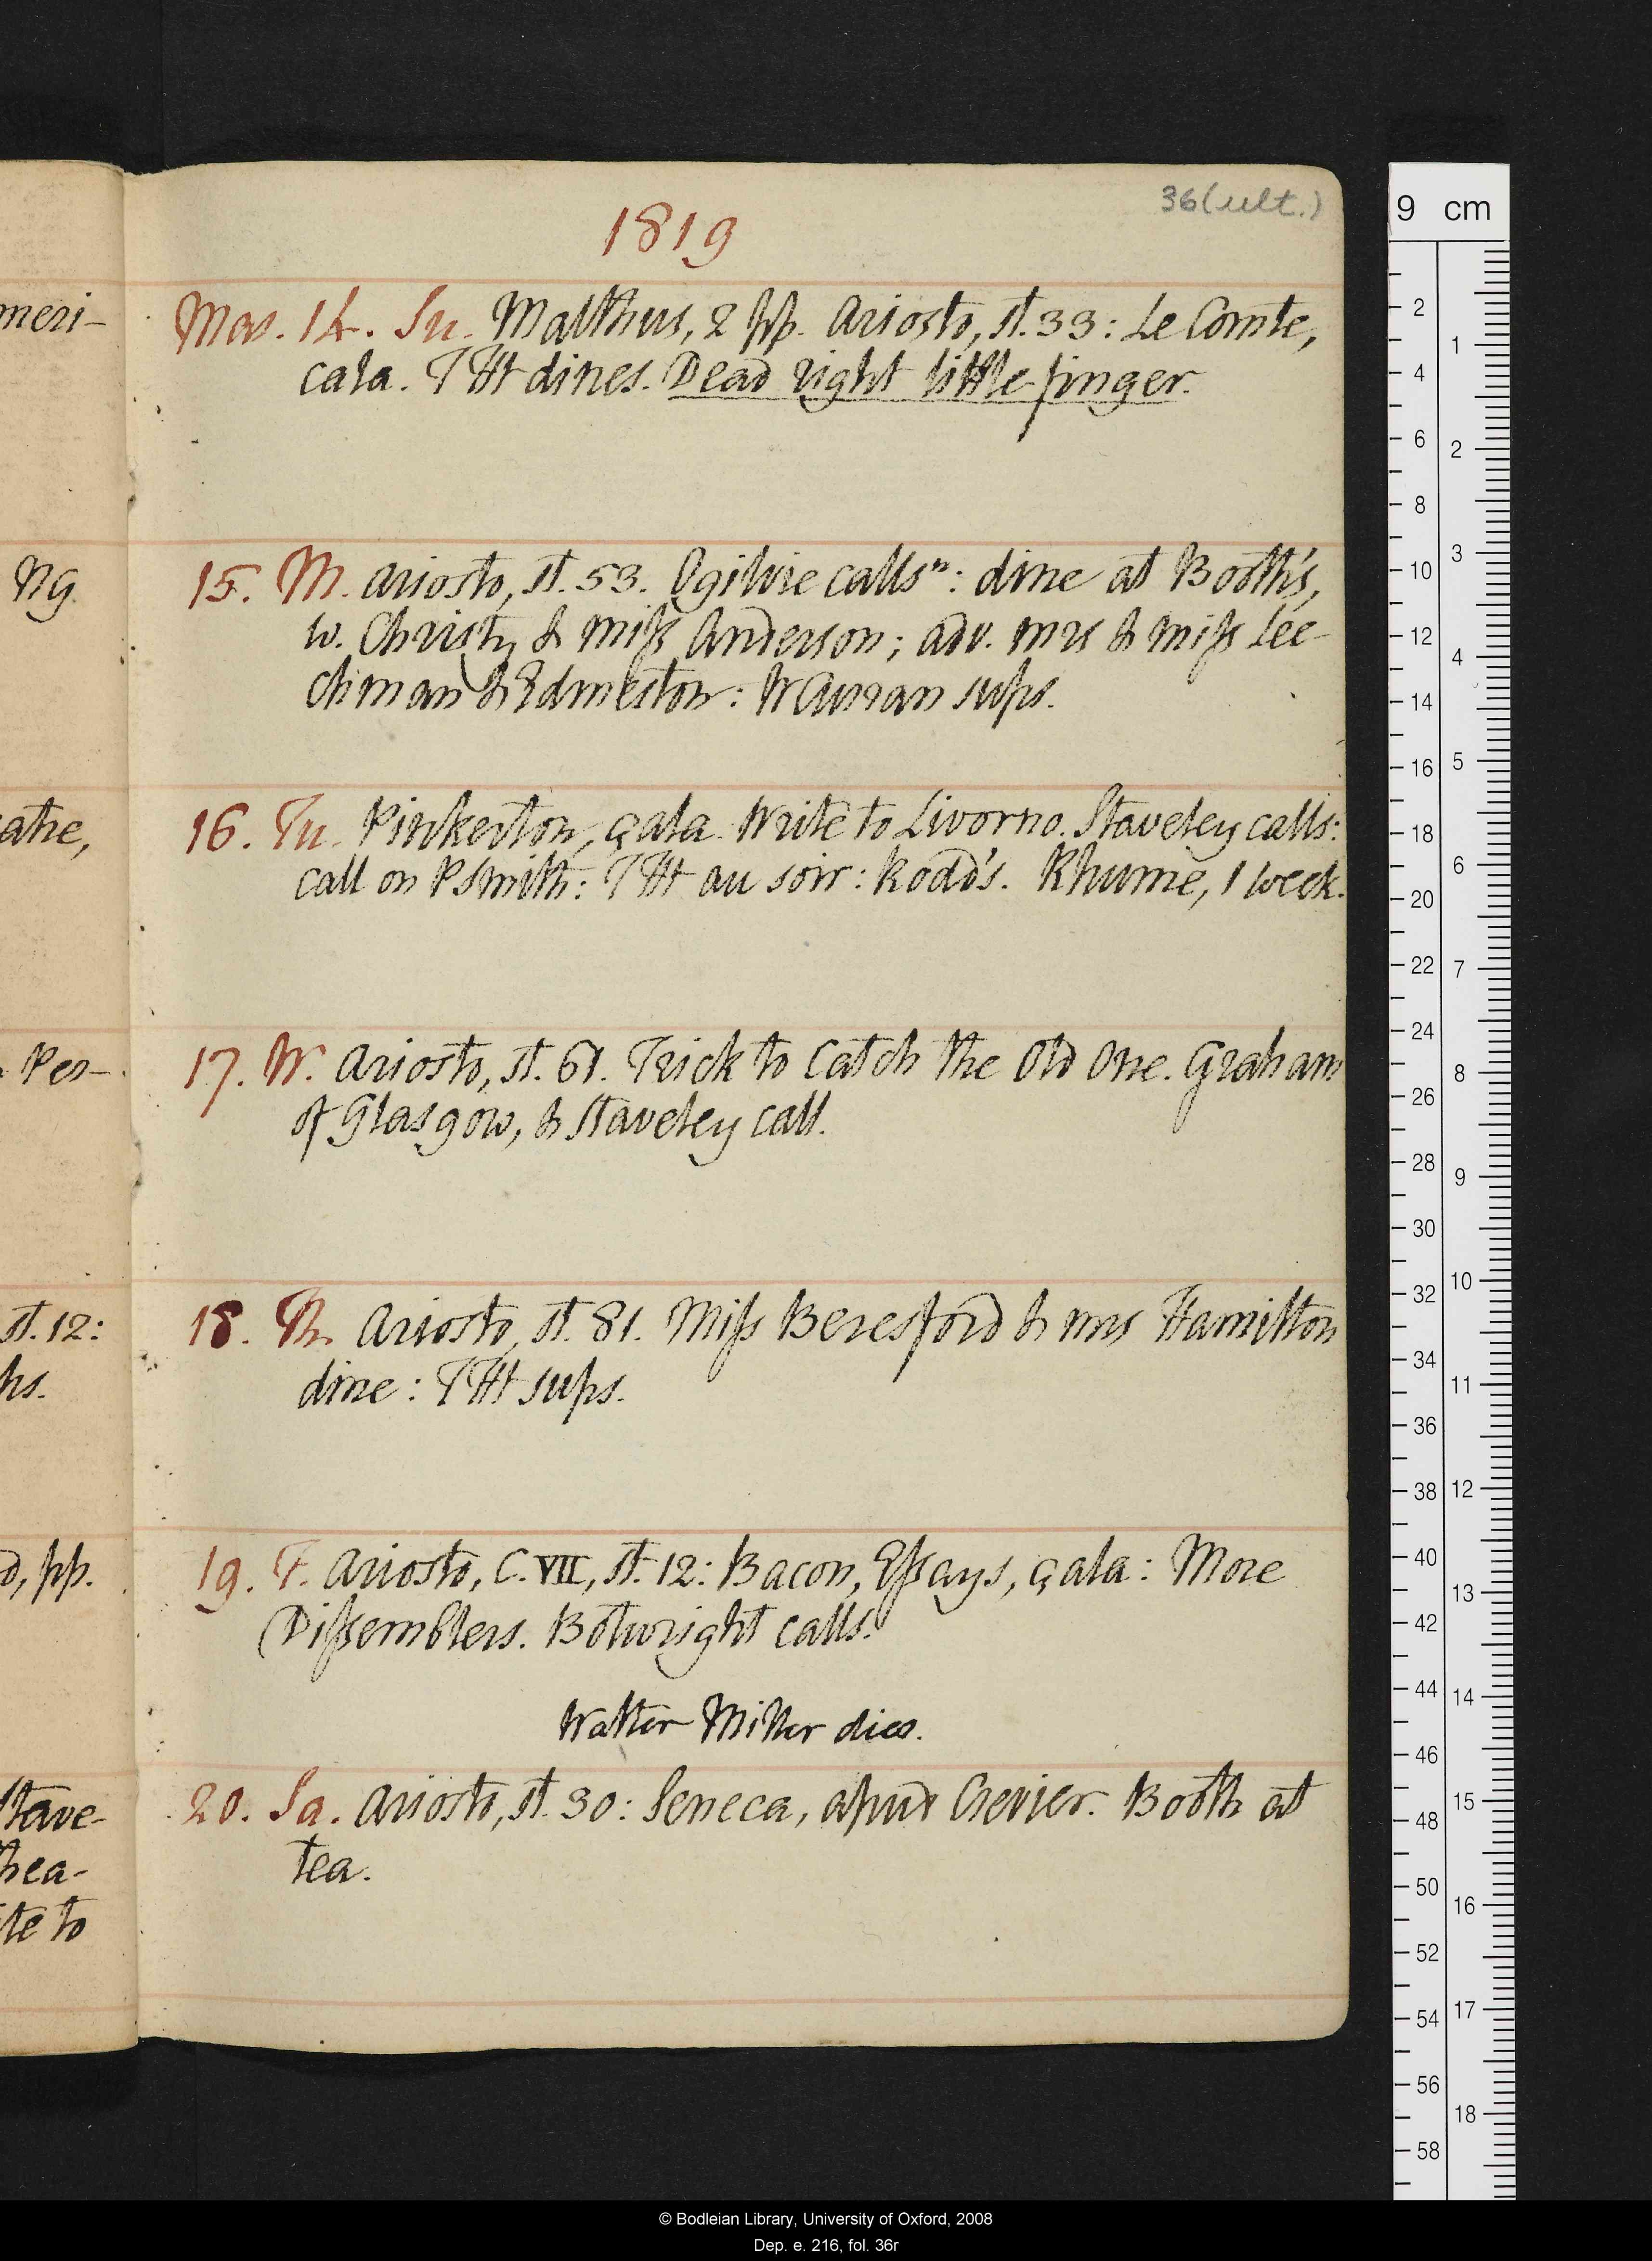 36 (ult.)
1819
Mar. 14. Su. Malthus, 2 pp. Ariosto, st. 33: Le Comte,
çala. THt dines. Dead right little finger.
15. M. Ariosto, st. 53. Ogilvie calls n: dine at Booth's,
w. Christy & miss Anderson; adv. mrs & miss Lee
chman & Edmeston: W Curran sups.
16. Tu. Pinkerton, çala. Write to Livorno. Staveley calls:
call on P Smith: THt au soir: Rodd's. Rhume, 1 week.
17. W. Ariosto, st. 61. Trick to Catch the Old One. Graham
of Glasgow, & Staveley call.
18. Th. Ariosto, st. 81. Miss Beresford & mrs Hamilton
dine: THt sups.
19. F. Ariosto, C. VII, st. 12: Bacon, Essays, çala: More
Dissemblers. Botwright calls.
Walter Miller dies.
20. Sa. Ariosto, st. 30: Seneca, apud Crevier. Booth at
tea.
meri-
Ng.
atre,
Per-
st. 12:
d, pp.
Stave-
hea-
te to
9 cm
2 4 6 8 10 12 14 16 18 20 22 24 26 28 30 32 34 36 38 40 42 44 46 48 50 52 54 56 58
1 2 3 4 5 6 7 8 9 10 11 12 13 14 15 16 17 18
© Bodleian Library, University of Oxford, 2008
Dep. e. 216, fol. 36r